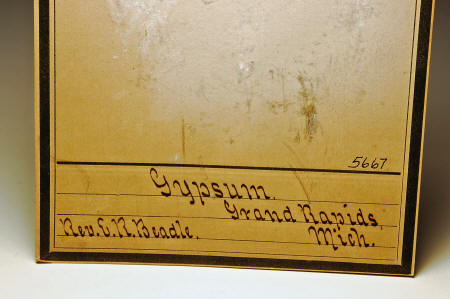 5667
Gypsum.
Grand Rapids,
Rev. E. R. Beadle. Mich.